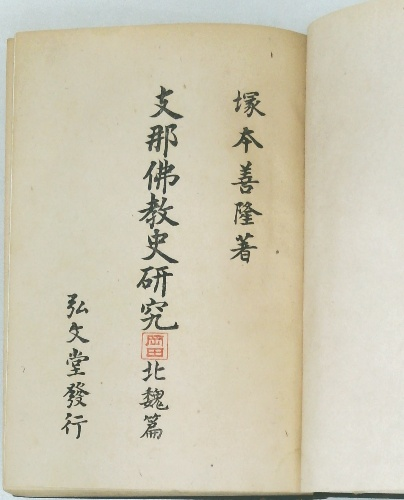 塚本善隆著
支那佛教史研究
岡田
北魏篇
弘文堂發行